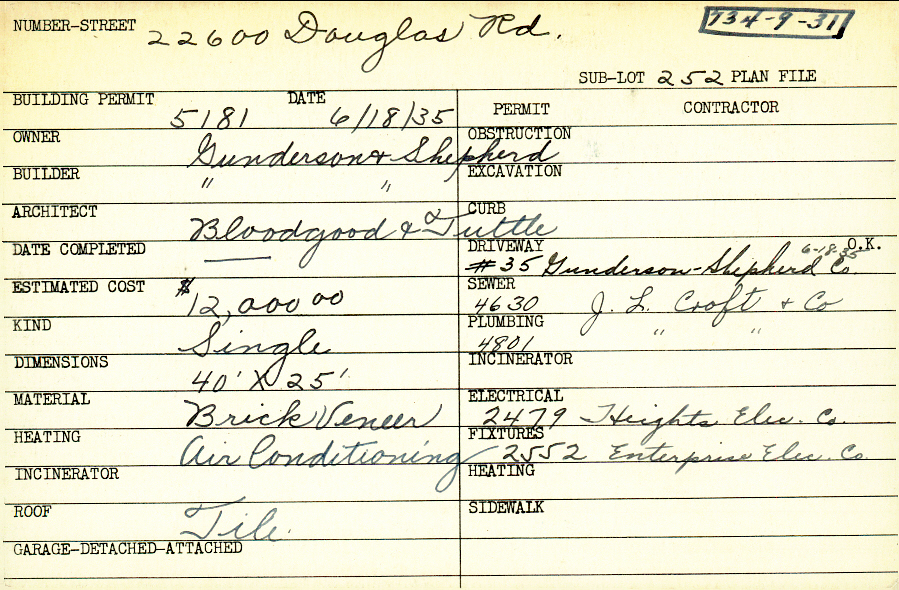 NUMBER-STREET 22600 Douglas Rd. 734-9-31
SUB-LOT 252 PLAN FILE
BUILDING PERMIT 5181 DATE 6/18/35
OWNER Gunderson & Shepherd
BUILDER " "
ARCHITECT Bloodgood & Tuttle
DATE COMPLETED ——
ESTIMATED COST $12,000 00
KIND Single
DIMENSIONS 40' X 25'
MATERIAL Brick Veneer
HEATING Air Conditioning
INCINERATOR
ROOF Tile.
GARAGE-DETACHED-ATTACHED
PERMIT CONTRACTOR
OBSTRUCTION
EXCAVATION
CURB
DRIVEWAY 6-18-35 O.K.
#35 Gunderson-Shepherd Co.
SEWER
4630 J. L. Croft & Co
PLUMBING
4801 " "
INCINERATOR
ELECTRICAL
2479 Heights Elec. Co.
FIXTURES
2552 Enterprise Elec. Co.
HEATING
SIDEWALK